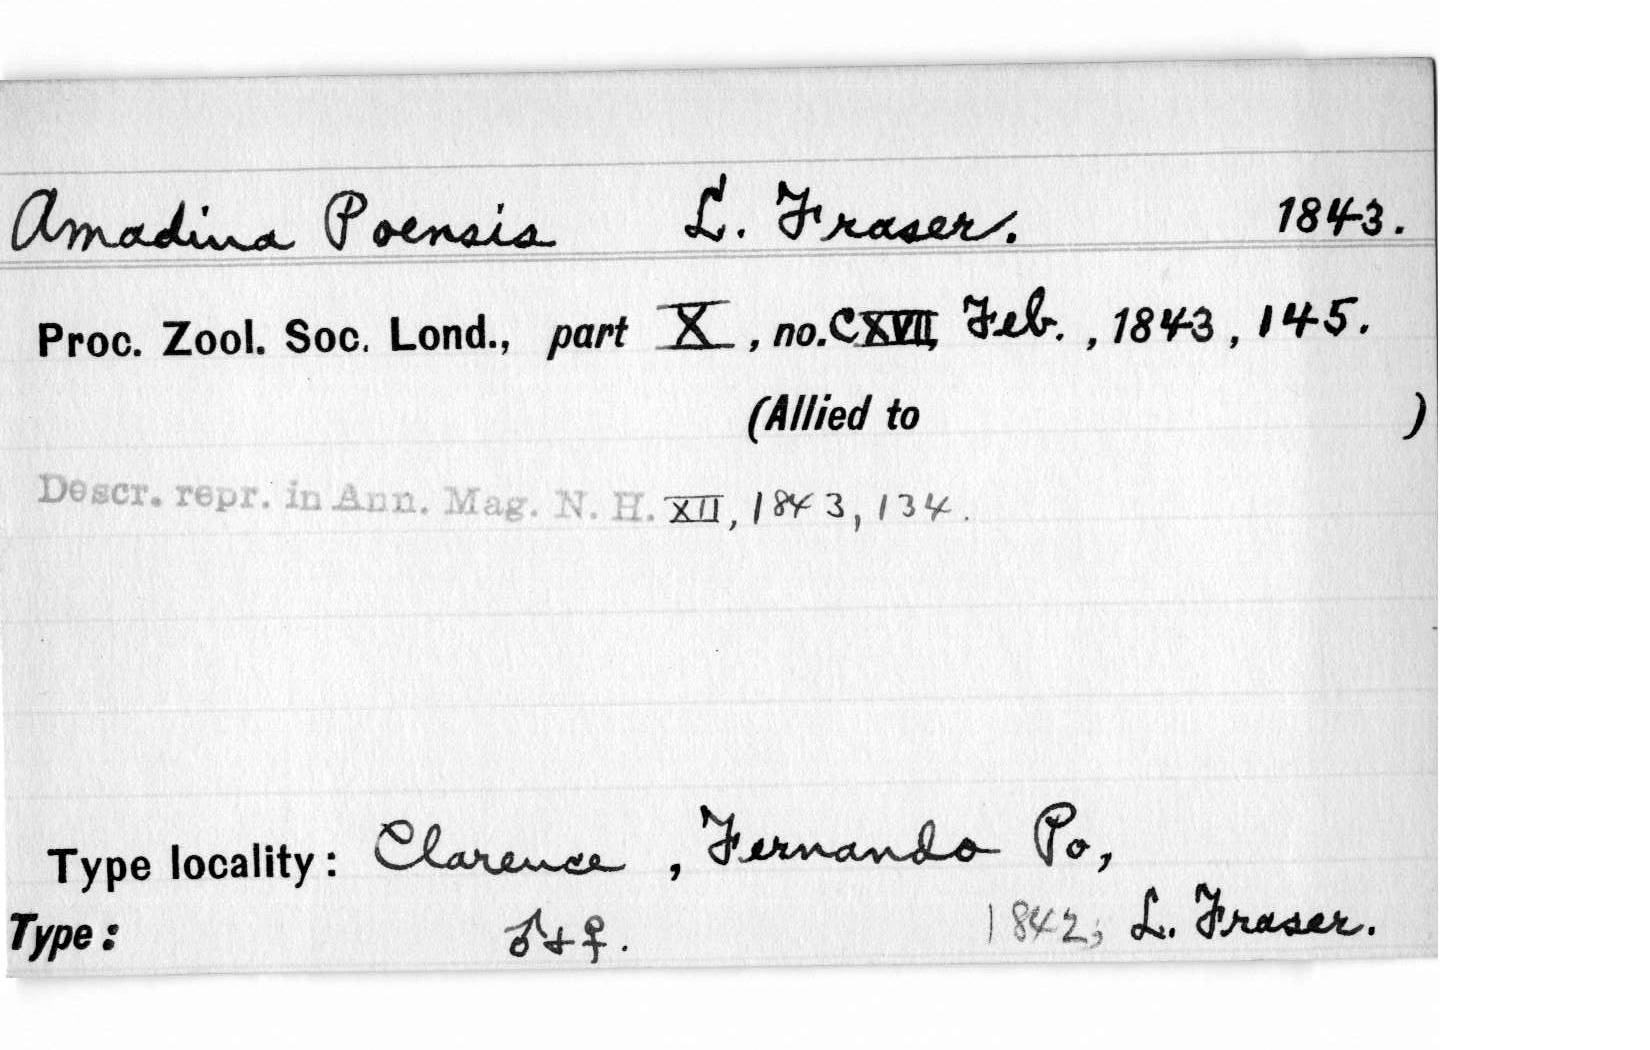 Amadina Poensis L. Fraser. 1843.
Proc. Zool. Soc. Lond., part X, no. CXVII, Feb., 1843, 145.
(Allied to )
Descr. repr. in Ann. Mag. N. H. XII, 1843, 134.
Type locality: Clarence, Fernando Po,
Type: ♂ + ♀. 1842; L. Fraser.